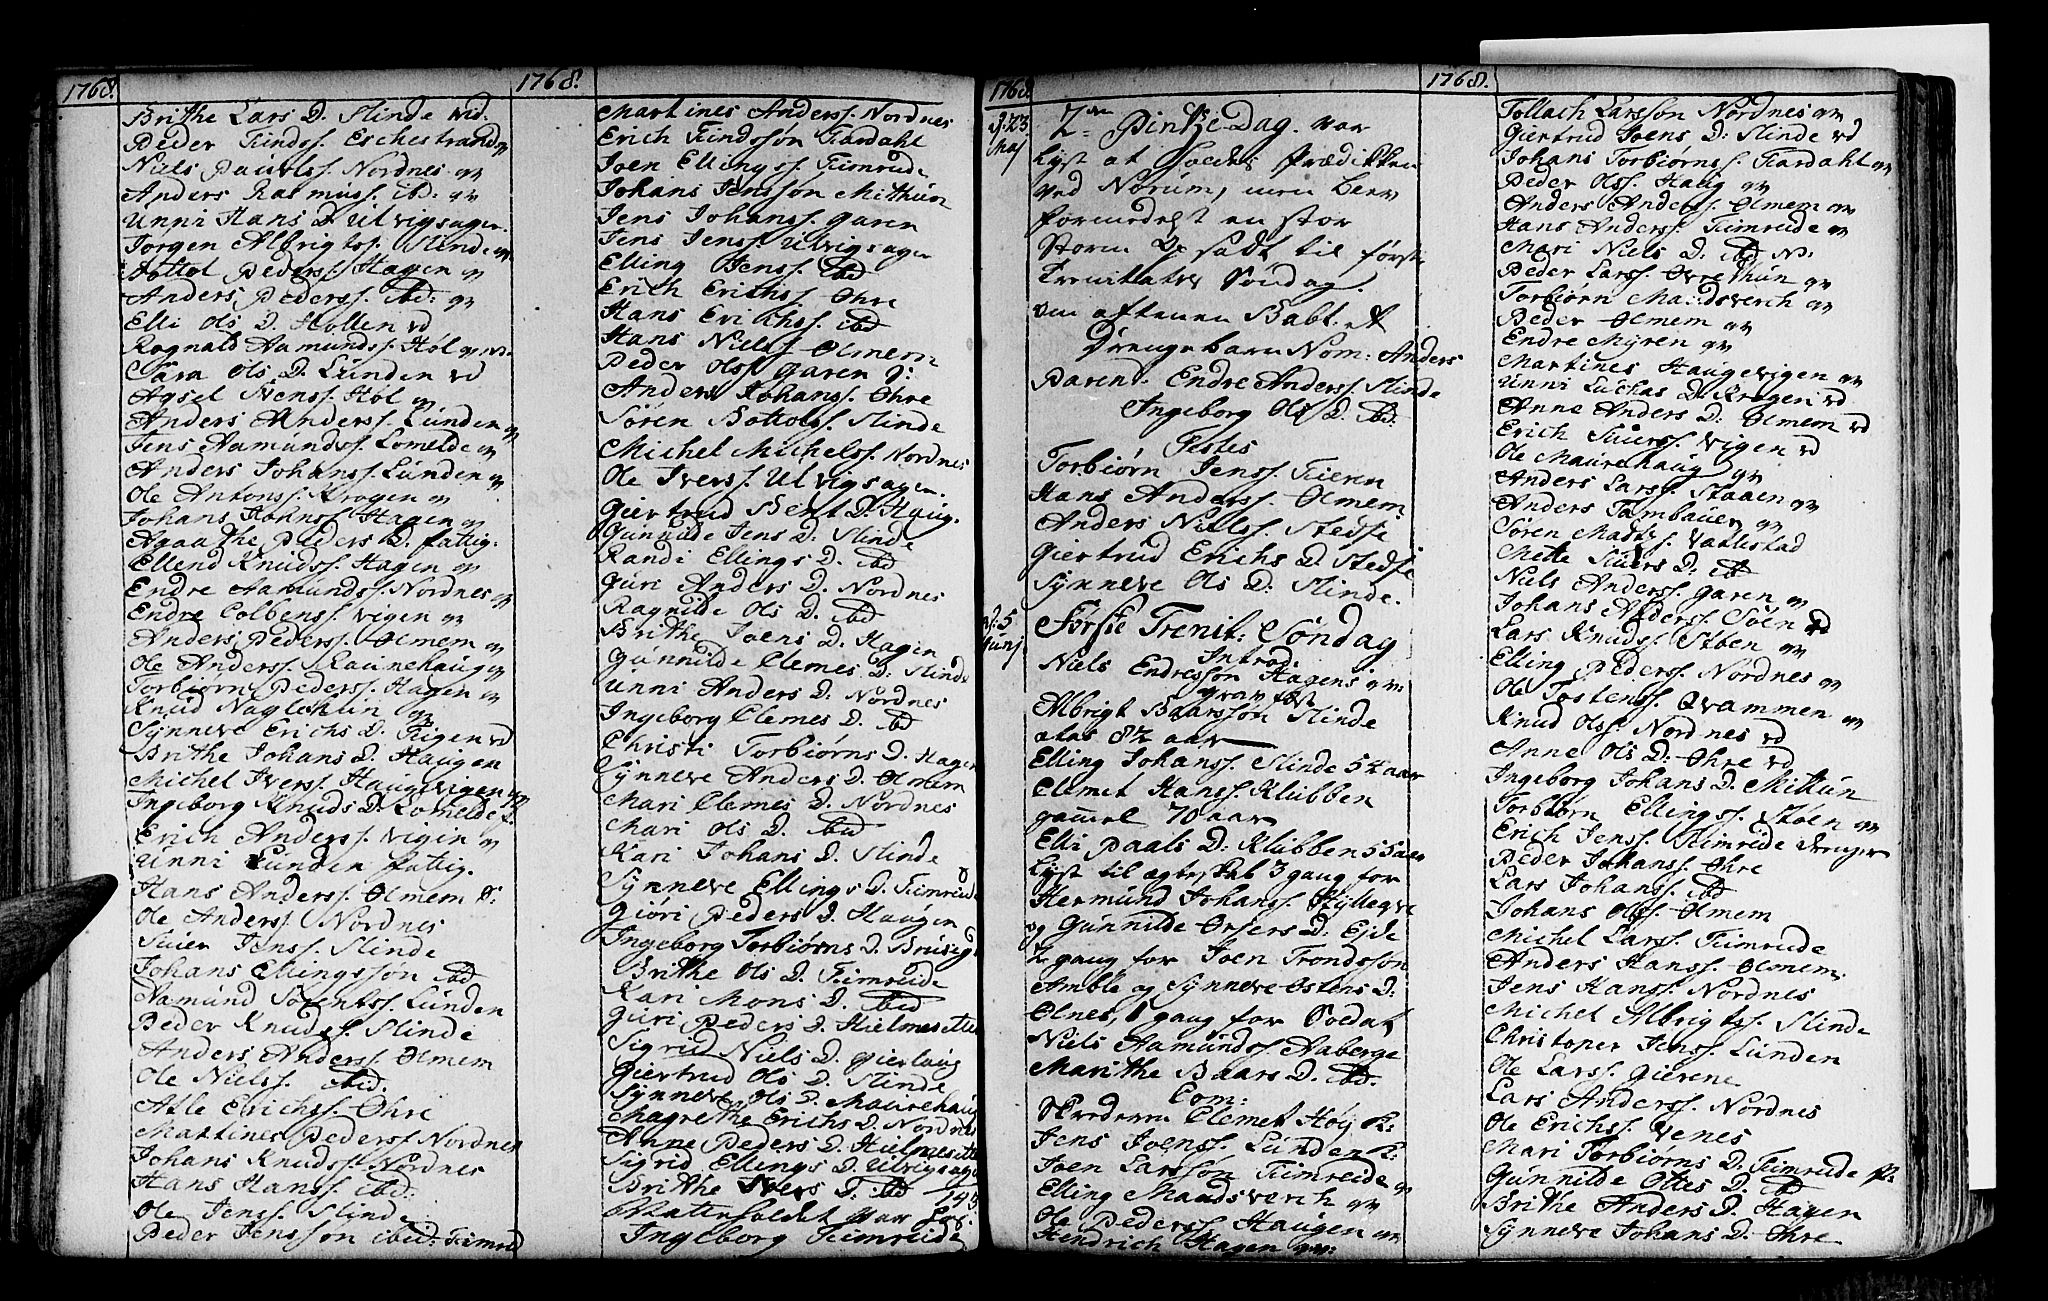 1768.
Brithe Lars D. Slinde vid.
Peder Findss. Eschestrand qv
Niels Pauelss. Nordnes qv
Anders Rasmuss. ibd: qv
Unni Hans D. Ulvigsager.
Jorgen Albrigtss. Slinde qv
Bottol Pederss. Hagen qv
Anders Pederss. ibd: qv
Elli Ols D. Hollen vd
Rognald Aamundss. Hol qv
Sara Ols D. Lunden vd
Axsel Jenss. Hol qv
Anders Anderss. Lunden qv
Jens Aamundss. Lomelde qv
Anders Johanss. Lunden qv
Ole Antonss. Krogen qv
Johans Johnss. Hagen qv
Agaathe Peders D. fattig.
Ellend Knudss. Hagen qv
Endre Aamundss. Nordnes qv
Endre Colbenss. Vigen qv
Anders Pederss. Olmem qv
Ole Anderss. Raunehaug qv
Torbiørn Pederss. Hagen qv
Knud Naglehun qv
Synneve Erichs D. Vigen vd
Brithe Johans D. Haugen
Michel Iverss. Haugevigen
Ingeborg Knuds D. Lomelde
Erich Anderss. Vigin qv
Unni Lunden fattig.
Hans Anderss. Olmem
Ole Anderss. Nordnes
Siuer Jenss. Slinde
Johans Ellingssøn ibd
Aamund Sorentss. Lunden
Peder Knudss. Slinde
Anders Anderss. Olmem
Ole Nielss. ibd.
Atle Erichss. Ohre
Mattines Pederss. Nordnes
Johans Knudss. Nordnes
Hans Hanss. ibd.
Ole Jenss. Slinde
Peder Jenssøn ibid: Fimreid
1768.
Martines Anderss. Nordnes
Erich Findssøn Fardahl
Joen Ellingss. Fimreide
Johans Jenssøn Mithun
Jens Johanss. Garen
Jens Jenss. Ulvigsager
Elling Jenss. ibd
Erich Erichss. Ohre
Hans Erichss. ibd
Hans Nielss. Olmem
Peder Olss. Garen
Anders Johanss. Ohre
Søren Bottolss. Slinde
Michel Michelss. Nordnes
Ole Iverss. Ulvigsager.
Giertrud Bent D. Haug.
Gunnilde Jens D. Slinde
Randi Ellings D. ibd
Guri Anders D. Nordnes
Ragnilde Ols D. ibd
Brithe Joens D. Hagen
Gunnilde Clemes D. Slinde
Unni Anders D. Nordnes
Ingeborg Clemes D. ibd
Christi Torbiørns D. Hagen
Synneve Anders D. Olmem
Mari Clemes D. Nordnes
Mari Ols D. ibid
Kari Johans D. Slinde
Synneve Ellings D. Fimreide
Giøri Peders D. Haugen
Ingeborg Torbiørns D.
Brithe Ols D. Fimreide
Kari Mons D. ibd
Guri Peders D.
Sigrid Niels D. Gierlaug
Giertrud Ols D. Slinde
Synneve Ols D. Maurehaug
Magrethe Erichs D. Nordnes
Anne Peders D.
Sigrid Ellings D. Ulvigsager
Brithe Ivers D. ibd
145
var
Ingeborg Fimreide
1768
d: 23
Maj
2den Pintze Dag. var
lyst at holdes Prædikken
ved Norum, men blev
formedelst en stor
Storm opsadt til første
Trenitatis Søndag.
om aftenen Babt. et
Drengebarn Nom: Anders
Paren. Endre Anderss. Slinde
Ingeborg Ols D. ibd.
Testes
Torbiørn Jenss. Fieren
Hans Anderss. Olmem
Anders Nielss. Stedse
Giertrud Erichs D. Stedse
Synneve Ols D: Slinde.
d: 5
Junj
Første Trenit: Søndag
Introd.
Niels Endressøn Hagens qv:
grav fæst
Albrigt Baarssøn Slinde
ætas 82 aar
Elling Johanss. Slinde 54 aar
Clemet Hanss. Klubben
gamel 70 aar
Elli Paals D: Klubben 55 aar
lyst til ægteskab 3 gang for
Hermund Johanss.
og Gunnilde D: Ejde
2 gang for Joen Trondssøn
Amble og Synneve Ostens D:
Elnes, 1 gang for Soldat
Niels Aamundss. Aaberge
Marithe Baars D. ibd.
Com:
Clemet Høy K:
Jens Joenss. Lunden K:
Joen Larssøn Fimreide qv
Elling Maudsverch qv
Ole Pederss. Haugen qv
Hendrich Hagen qv:
1768.
Tollach Larssøn Nordnes qv
Giertrud Joens D: Slinde vd
Johans Torbiørns. Fardahl qv
Peder Olss. Haug qv
Anders Anderss. Olmem qv
Hans Anderss. Fimreide qv
Mari Niels D. ibd
Peder Larss. Øvrethun qv
Torbiørn Maudsverch qv
Peder Olmem qv
Endre Myren qv
Martines Haugevigen qv
Unni Luchas D. Krogen vd
Anne Anders D: Olmem vd
Erich Siuerss. Vigen vd
Ole Maurehaug qv
Anders Larss. Staaen qv
Anders Tambauer qv
Søren Vallestad
Mette Siuers D. ibd
Niels Anderss. Garen qv
Johans Anderss. Søen vd
Lars Knudss. Støen qv
Elling Pederss. Nordnes qv
Ole Tostenss. Qvammen qv
Knud Olss. Nordnes vd
Anne Ols D. Ohre vd
Ingeborg Johans D. Mithun
Torbiørn Ellingss. Støen qv
Erich Jenss. Slimreide
Peder Johanss. Ohre
Lars Johanss. ibd
Johans Olss. Olmem
Michel Larss. Fimreide
Anders Hanss. Olmem
Jens Hanss. Nordnes
Michel Albrigtss. Slinde
Christoper Jenss. Lunden
Ole Larss. Gierene
Lars Anderss. Nordnes
Ole Erichss. Venes
Mari Torbiørns D. Fimreide
Gunnilde Ottes D. ibd
Brithe Anders D. Hagen
Synneve Johans D: Ohre